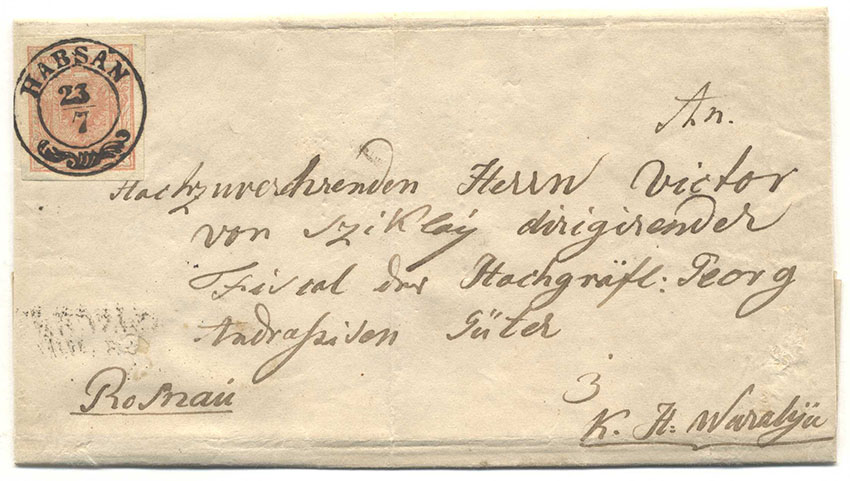 HABSAN
23
7
An.
Hochzuverehrenden Herrn Victor
von Sziklay dirigirender
Fiscal der Hochgräfl: Georg
Andraßisen Güter
Rosnau
3
K. H: